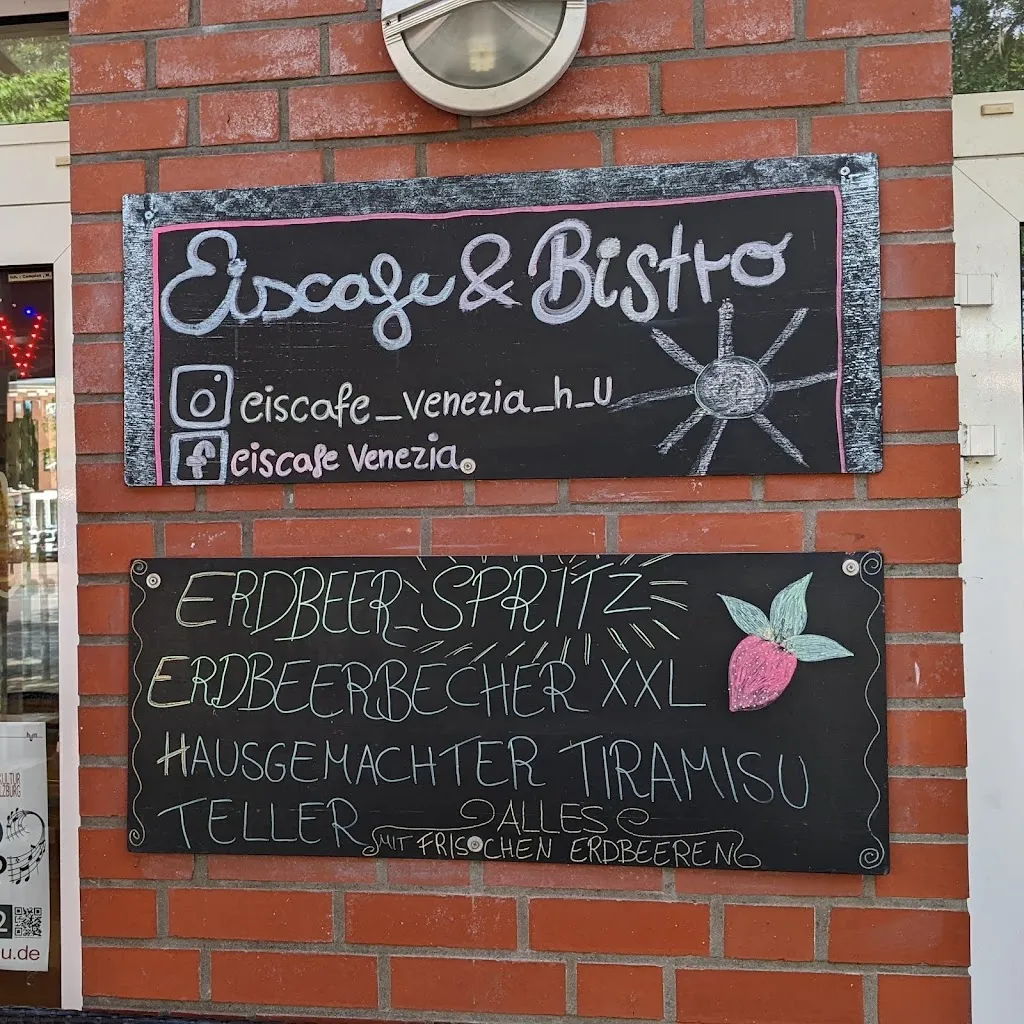 Eiscafe & Bistro
eiscafe_venezia_h_u
eiscafe venezia
ERDBEER-SPRITZ
ERDBEERBECHER XXL
HAUSGEMACHTER TIRAMISU
TELLER ALLES
MIT FRISCHEN ERDBEEREN
KULTUR
2
u.de